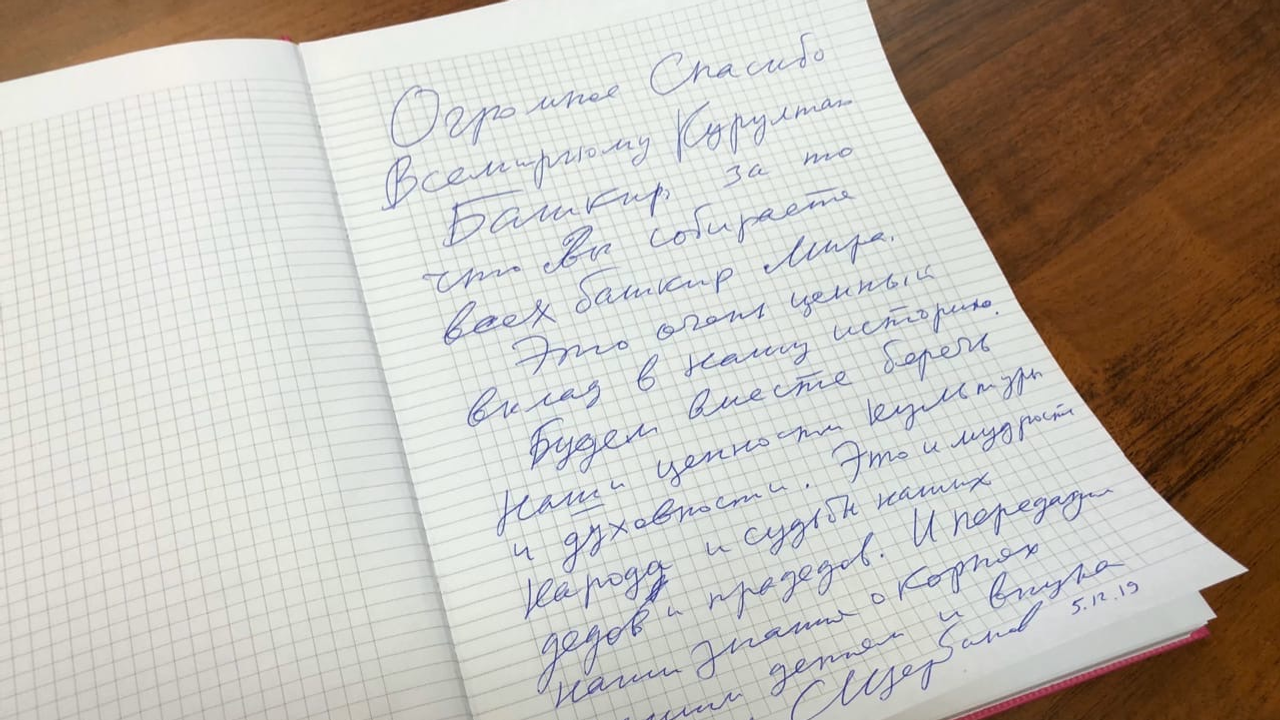 Огромное Спасибо
Всемирному Курултаю
Башкир за то
что Вы собираете
всех башкир Мира.
Это очень ценный
вклад в нашу историю.
Будем вместе беречь
наши ценности культуры
и духовности. Это и мудрость
народа и судьбы наших
дедов и прадедов. И передадим
наши знания о корнях
детям и внукам
Щербаков 5.12.19